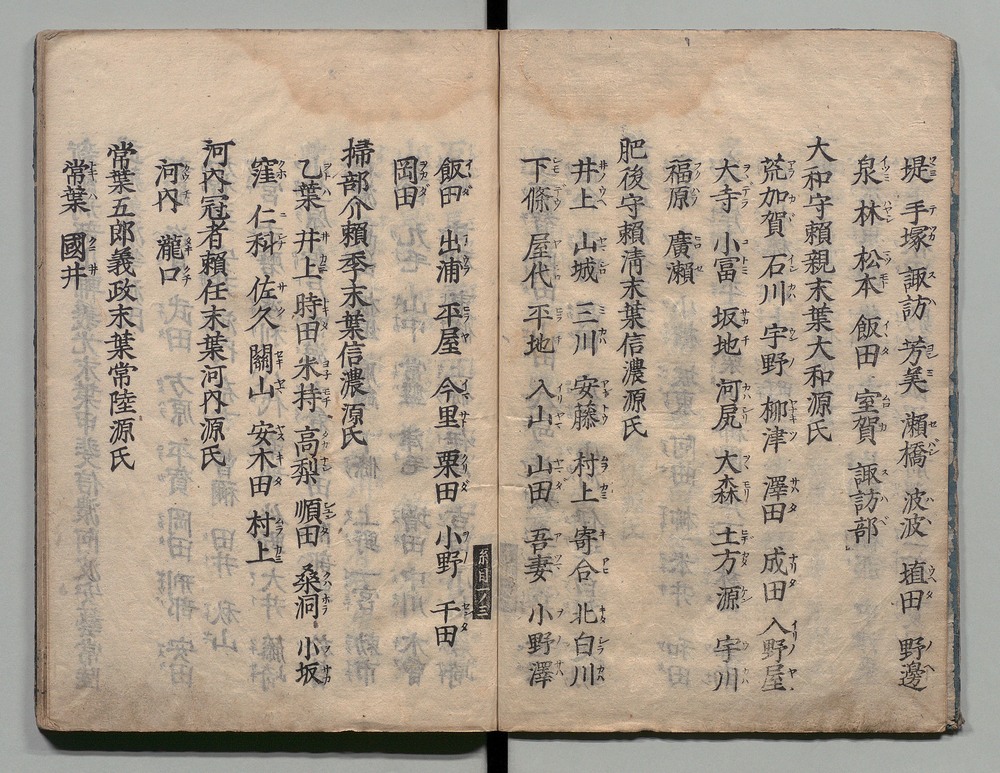 堤 手塚 諏訪 芳美 瀬橋 波波 埴田 野邊
泉 林 松本 飯田 室賀 諏訪部
大和守頼親末葉大和源氏
荒加賀 石川 宇野 柳津 澤田 成田 入野屋
大寺 小富 坂地 河尻 大森 土方 源 宇川
福原 廣瀬
肥後守頼清末葉信濃源氏
井上 山城 三川 安藤 村上 寄合 北白川
下條 屋代 平地 入山 山田 吾妻 小野澤
飯田 出浦 平屋 今里 栗田 小野 千田
岡田
掃部介頼季末葉信濃源氏
乙葉 井上 時田 米持 高梨 順田 桑洞 小坂
窪 仁科 佐久 關山 安木田 村上
河内冠者頼任末葉河内源氏
河内 瀧口
常葉五郎義政末葉常陸源氏
常葉 國井